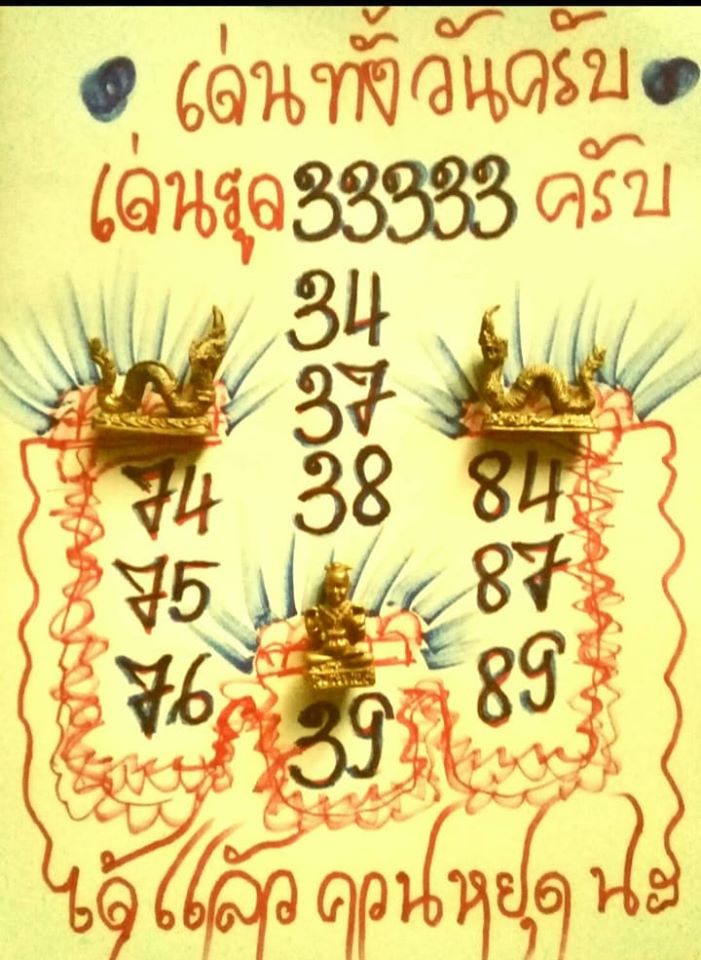 เด่นทั้งวันครับ
เด่นรูด 33333 ครับ
34
37
38
74
75
76
84
87
89
39
ได้แล้วควนหยุดนะ